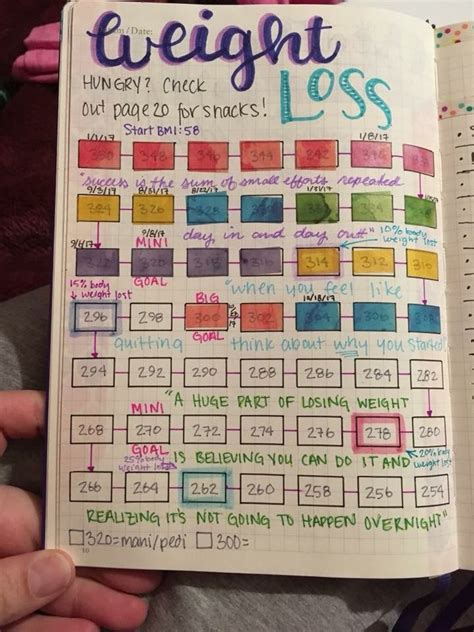 Weight
Loss
/Date:
HUNGRY? Check
out page 20 for snacks!
Start BMI: 58
1/1/17 1/8/17
350 348 346 344 342
"success is the sum of small efforts repeated
9/3/17
324 326 328
day, in and day out"
10% body
weight lost
9/8/17
MINI
GOAL
322 320 318 316 314 312 310
15% body
weight lost
"when you feel like
BIG
GOAL
10/18/17
296 298 300 302 304 306 308
quitting think about why you started
294 292 290 288 286 284 282
"A HUGE PART OF LOSING WEIGHT
MINI
GOAL
268 270 272 274 276 278 280
25% body
weight lost
IS BELIEVING YOU CAN DO IT AND
20% body
weight lost
266 264 262 260 258 256 254
REALIZING IT'S NOT GOING TO HAPPEN OVERNIGHT"
320=mani/pedi 300=